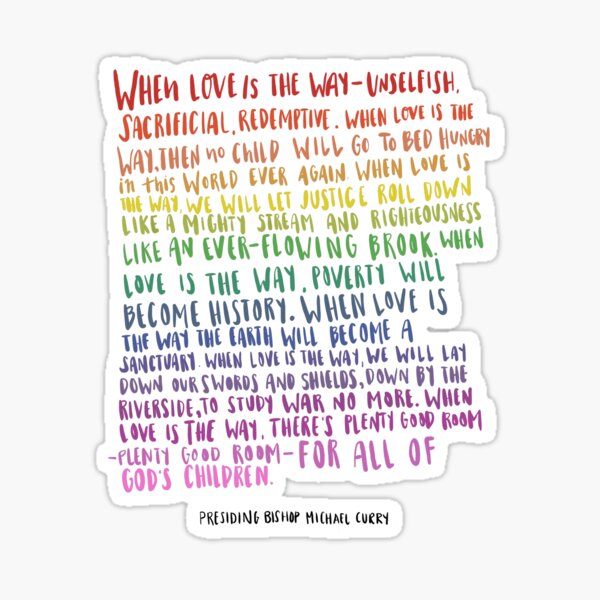 WHEN LOVE IS THE WAY-UNSELFISH,
SACRIFICIAL, REDEMPTIVE. WHEN LOVE IS THE
WAY, THEN no CHILD WILL GO TO BED HUNGRY
in this WORLD EVER AGAIN. WHEN LOVE IS
THE WAY, WE WILL LET JUSTICE ROLL DOWN
LIKE A MIGHTY STREAM AND RIGHTEOUSNESS
LIKE AN EVER-FLOWING BROOK. WHEN
LOVE IS THE WAY, POVERTY WILL
BECOME HISTORY. WHEN LOVE IS
THE WAY THE EARTH WILL BECOME A
SANCTUARY. WHEN LOVE IS THE WAY, WE WILL LAY
DOWN OUR SWORDS AND SHIELDS, DOWN BY THE
RIVERSIDE, TO STUDY WAR NO MORE. WHEN
LOVE IS THE WAY, THERE'S PLENTY GOOD ROOM
-PLENTY GOOD ROOM-FOR ALL OF
GOD'S CHILDREN.
PRESIDING BISHOP MICHAEL CURRY